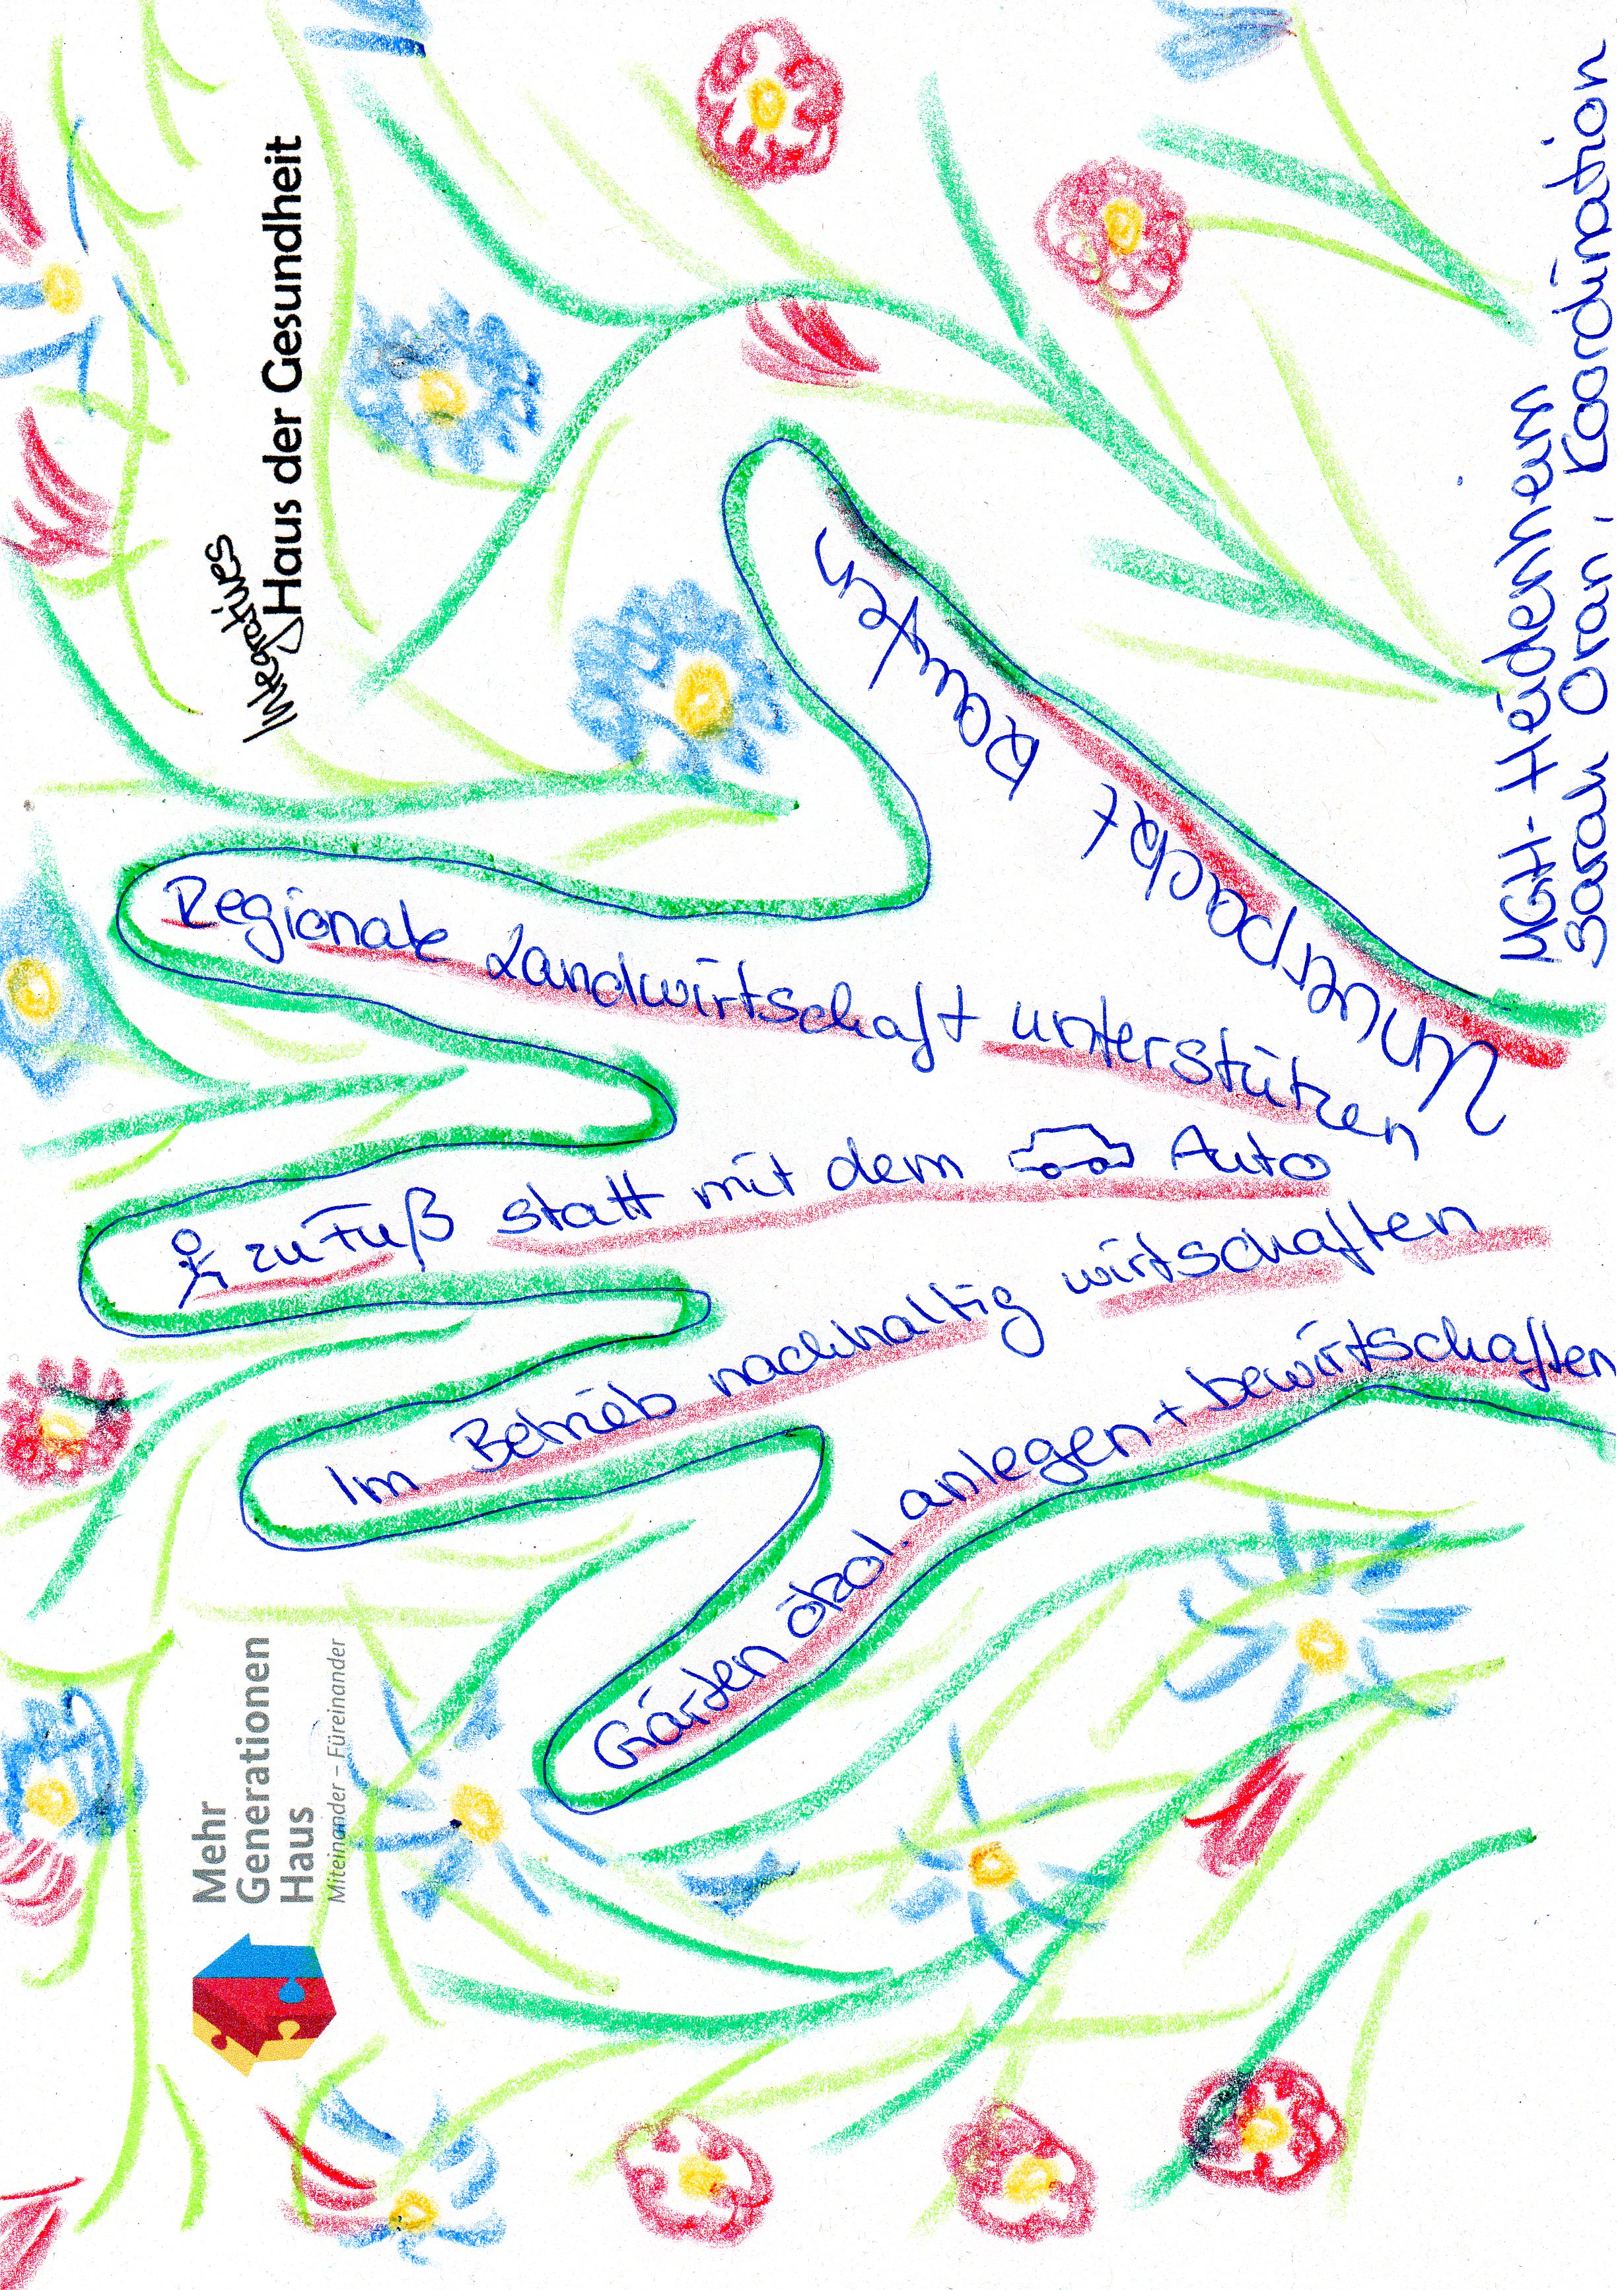 Integratives
Haus der Gesundheit
Unverpackt kaufen
Regionale Landwirtschaft unterstützen
zu Fuß statt mit dem Auto
Im Betrieb nachhaltig wirtschaften
Gärten ökol. anlegen + bewirtschaften
Mehr
Generationen
Haus
Miteinander – Füreinander
MGH-Heidenheim
Sarah Oran, Koordination